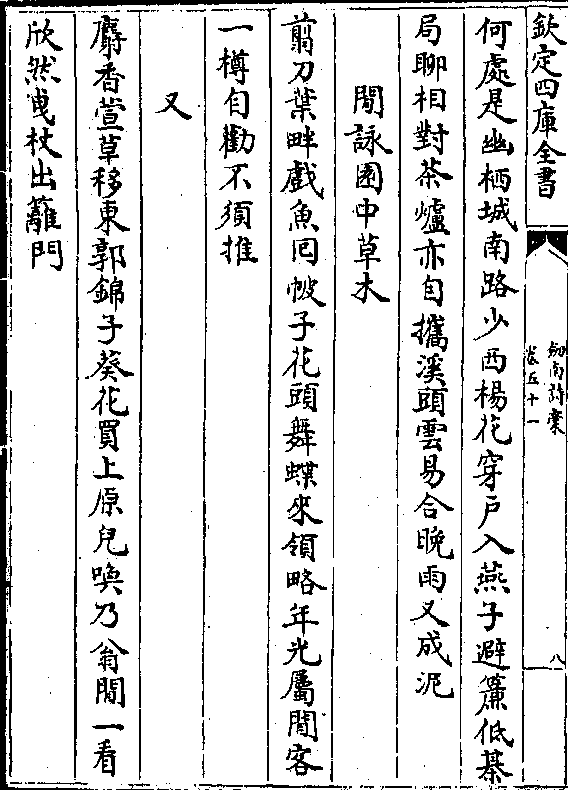 欽定四庫全書
劒南詩稾
卷五十一
八
何處是幽栖城南路少西楊花穿戸入燕子避簾低棊
局聊相對茶爐亦自攜溪頭雲易合晚雨又成泥
閒詠園中草木
翦刀葉畔戲魚回帔子花頭舞蝶來領略年光屬閒客
一樽自勸不須推
又
麝香萱草移東郭錦子葵花買上原兒喚乃翁閒一看
欣然曳杖出籬門